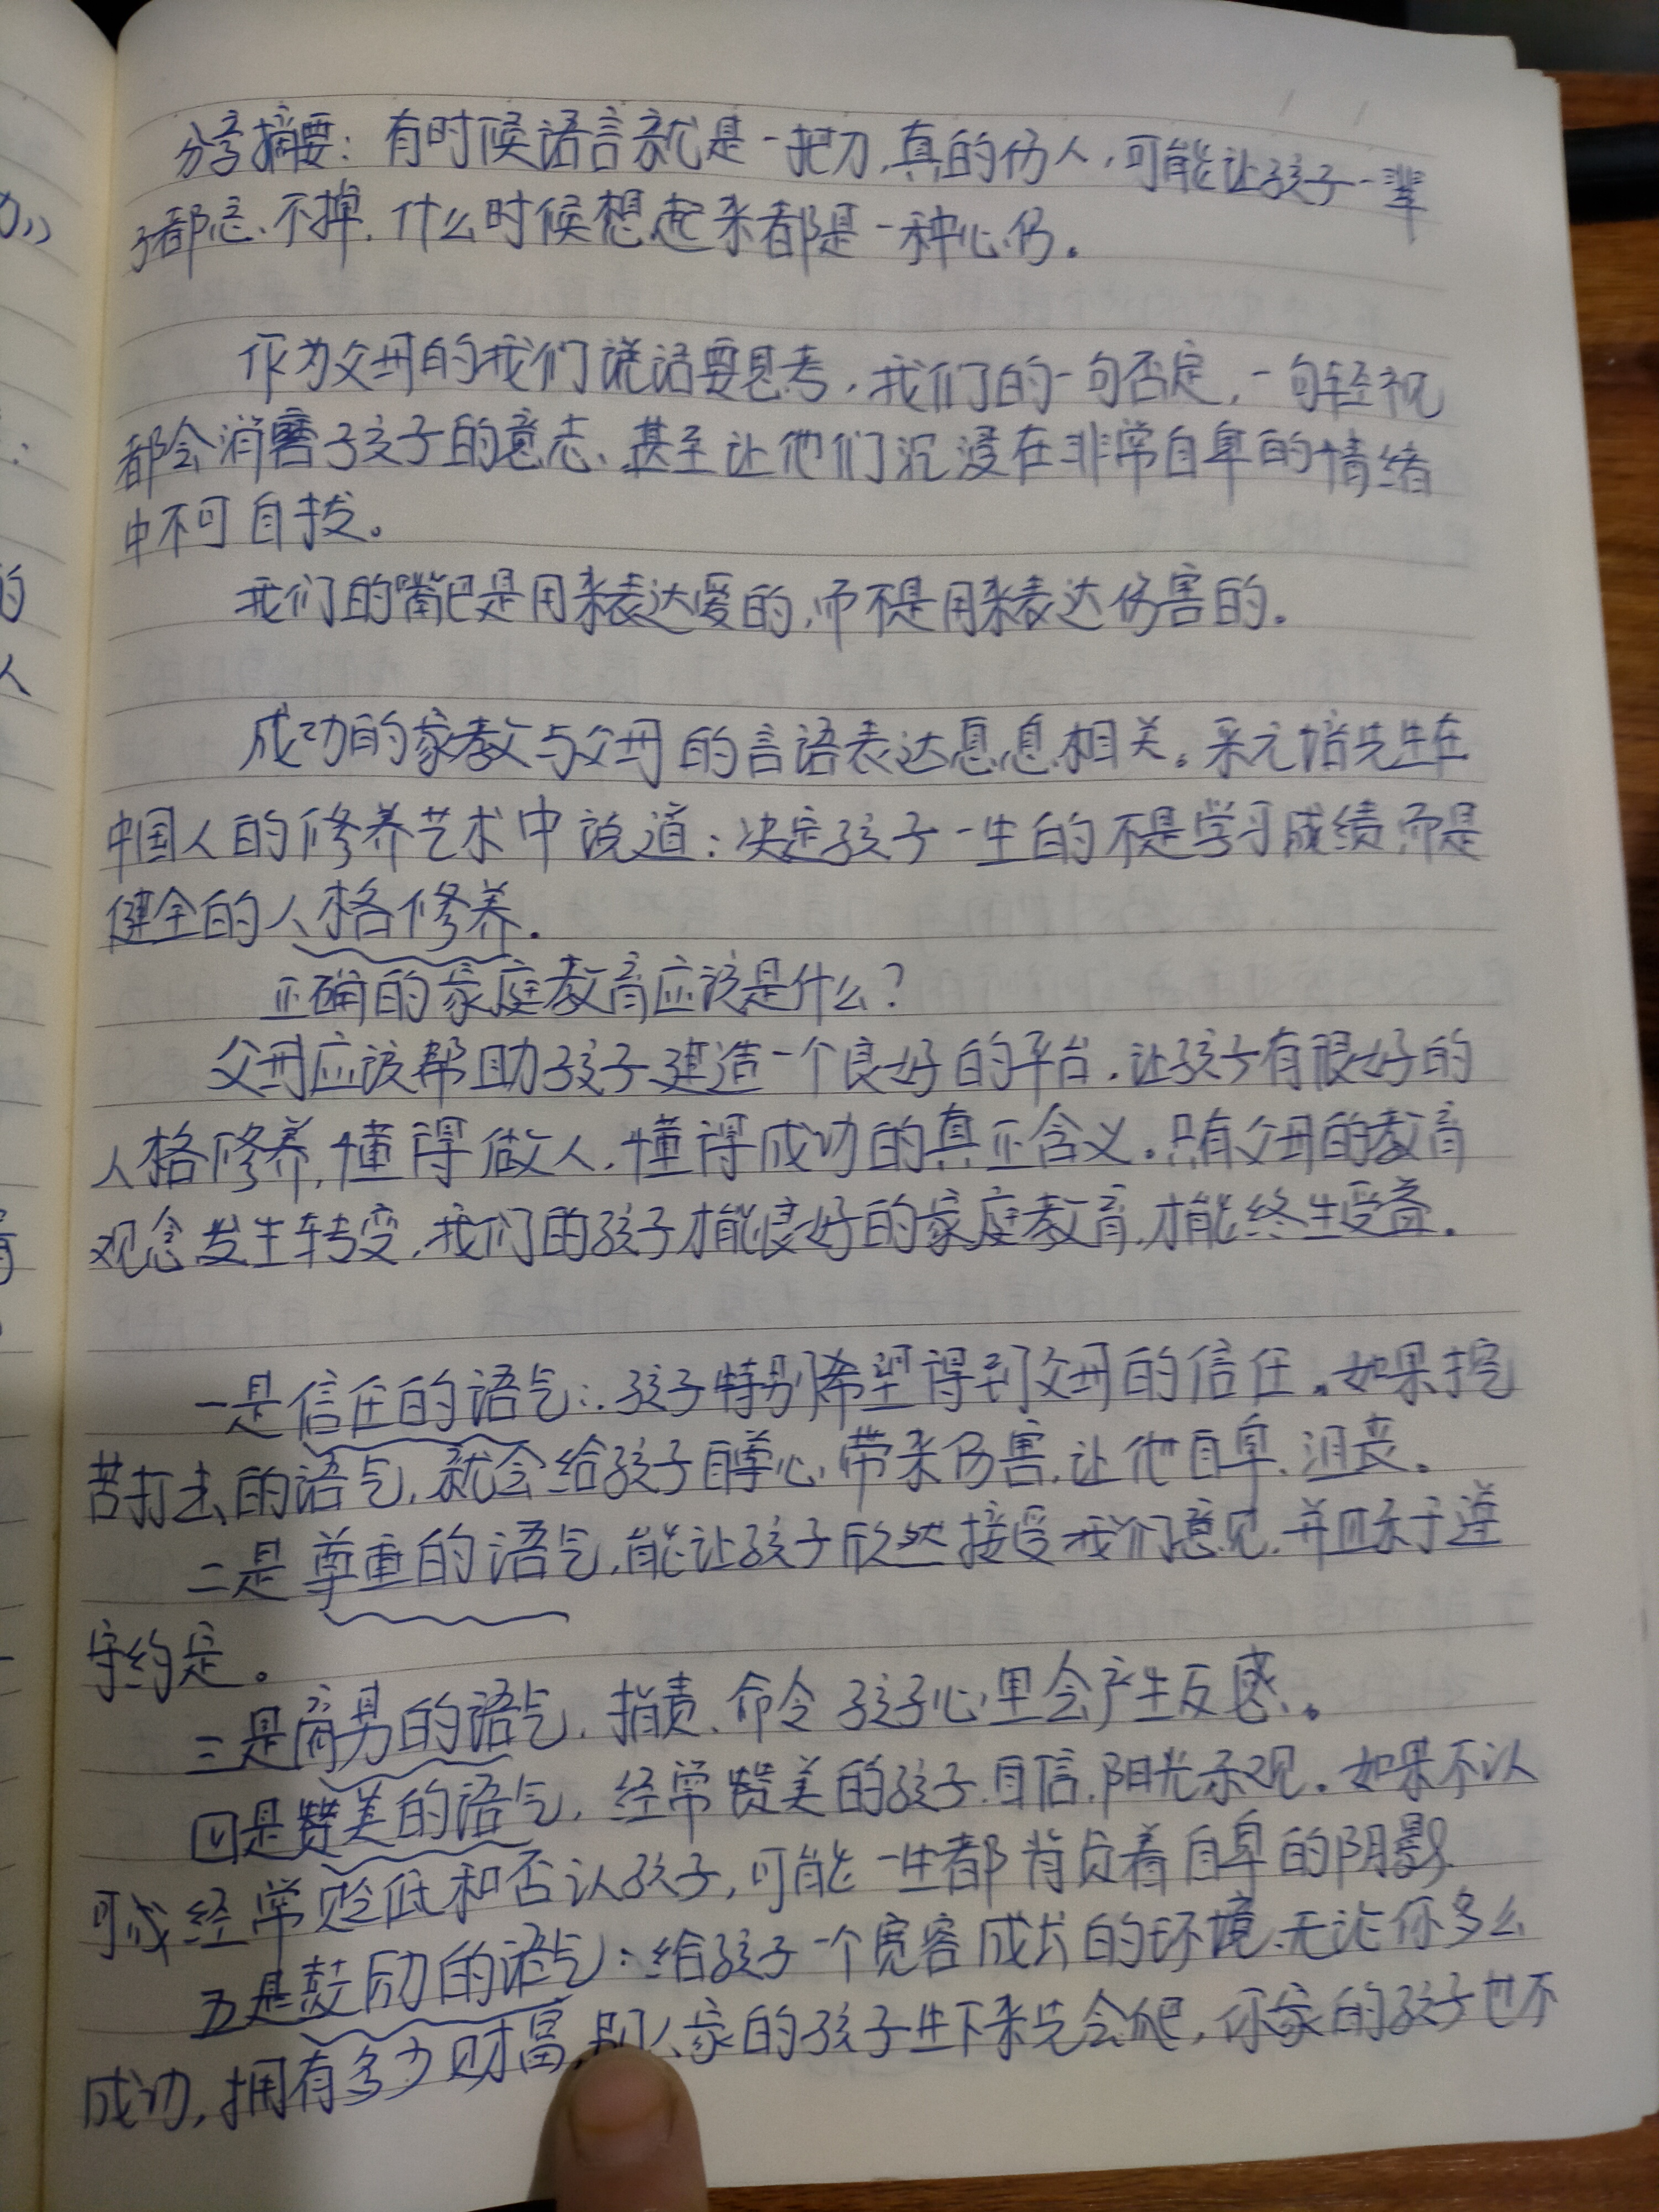 分享摘要：有时候语言就是一把刀,真的伤人,可能让孩子一辈
子都忘不掉,什么时候想起来都是一种心伤。
作为父母的我们说话要思考,我们的一句否定,一句轻视
都会消磨了孩子的意志、甚至让他们沉浸在非常自卑的情绪
中不可自拔。
我们的嘴巴是用来表达爱的,而不是用来表达伤害的。
成功的家教与父母的言语表达息息相关。采元培先生在
中国人的修养艺术中说道：决定孩子一生的不是学习成绩,而是
健全的人格修养.
正确的家庭教育应该是什么?
父母应该帮助孩子建造一个良好的平台,让孩子有很好的
人格修养,懂得做人,懂得成功的真正含义。只有父母的教育
观念发生转变,我们的孩子才能良好的家庭教育,才能终生受益。
一是信任的语气：孩子特别希望得到父母的信任。如果挖
苦打击的语气,就会给孩子自尊心带来伤害,让他自卑、沮丧。
二是尊重的语气,能让孩子欣然接受我们意见,并且乐于遵
守约定。
三是商量的语气,指责、命令孩子心里会产生反感。
四是赞美的语气,经常赞美的孩子,自信,阳光乐观。如果不认
可或经常贬低和否认孩子,可能一生都背负着自卑的阴影.
五是鼓励的语气：给孩子一个宽容成长的环境,无论你多么
成功,拥有多少财富,别人家的孩子生下来先会爬,你家的孩子也不